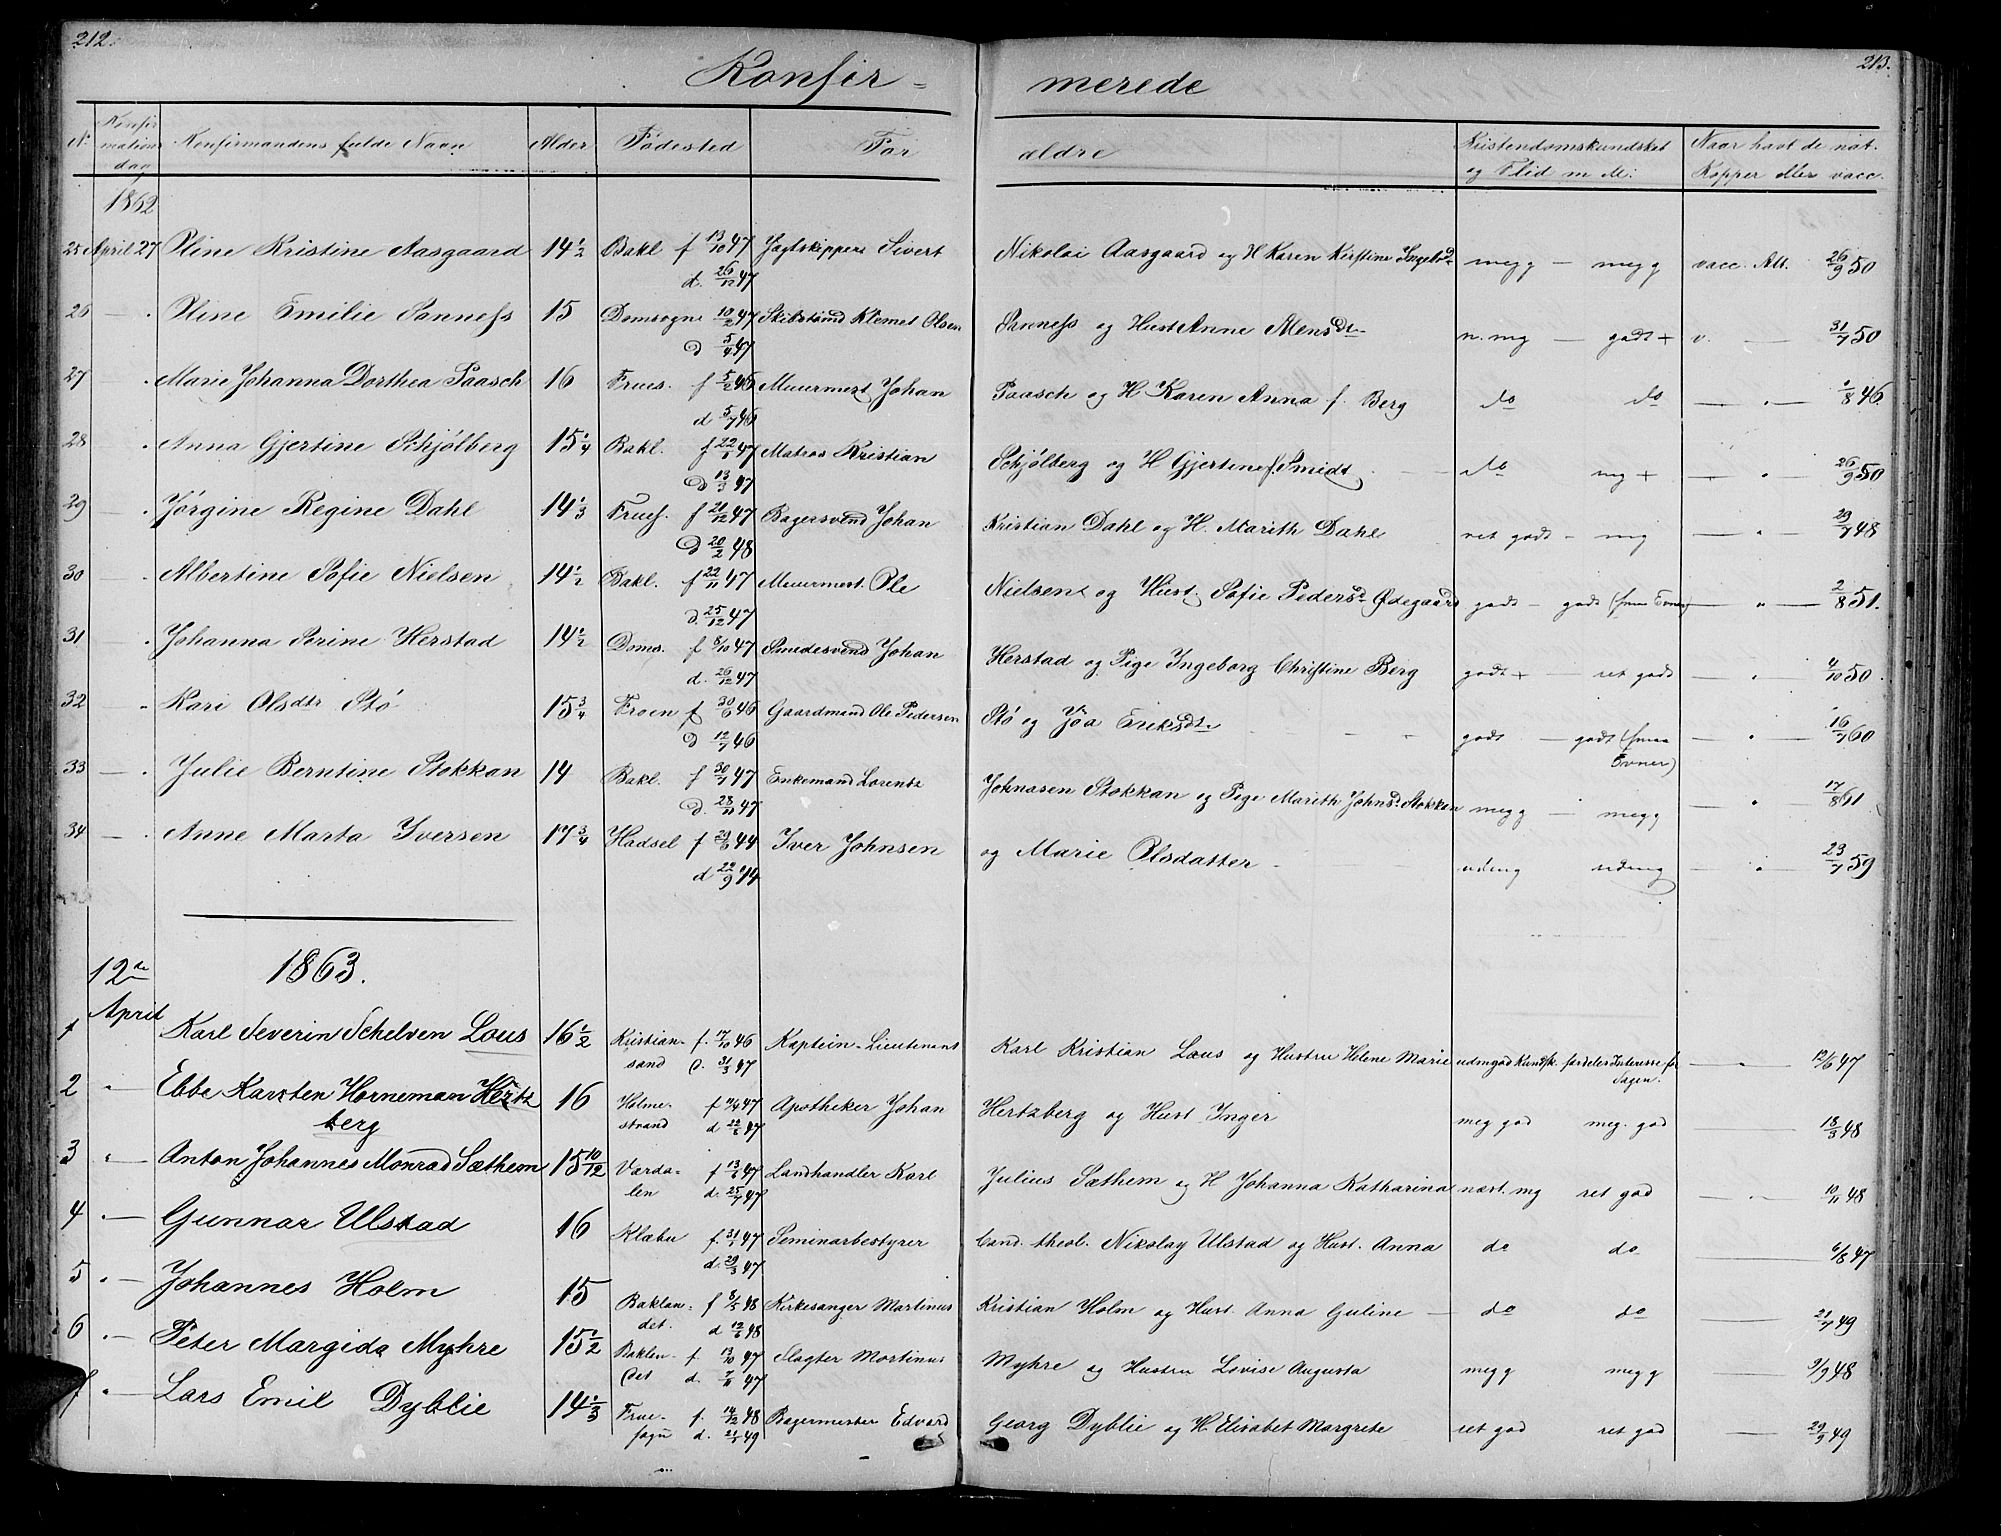 212.
213.
Konfir = merede
N: Konfirmations dag Konfirmandens fulde Navn Alder Fødested For ældre Kristendomskundskab og Flid m M: Naar havt de nat. Kopper eller vacc.
1862
25 April 27 Oline Kristine Aasgaard 14 1/2 Bakl. f 13/10 47 Jagtskipper Sivert Nikolai Aasgaard og H Karen Kirstine megg — megg vacc. Att. 26/9 50
d. 26/12 47
26 — Oline Emilie Sanness 15 Domsogne 10/2 47 Skibstømd Klemet Olsen Sanness og Hust Anne n. mg — godt + v. — 31/7 50
d 5/4 47
27 — Marie Johanna Dorthea Paasch 16 Frues. f 5/2 46 Muurmest. Johan Paasch og H Karen Anna f. Berg do do — " — 1/8 46
d 5/7 46
28 Anna Gjertine Schjølberg 15 1/4 Bakl. f 22/1 47 Matros Kristian Schjølberg og H Gjertine f. Smidt do mg + — " 26/9 50
d 13/3 47
29 — Jørgine Regine Dahl 14 1/3 Frues. f 21/12 47 Bagersvend Johan Kristian Dahl og H. Marith Dahl ret godt – mg — " — 29/7 48
d 20/2 48
30 — Albertine Sofie Nielsen 14 1/2 Bakl. f 22/11 47 Muurmest. Ole Nielsen og Hust. Sofie Pedersd. Ødegaard godt – godt (smaa Evner) — " — 2/8 51.
d. 25/12 47
31 — Johanna Serine Herstad 14 1/2 Doms. f 8/10 47 Smedesvend Johan Herstad og Pige Ingeborg Christine Berg godt + — ret godt — " — 4/10 50
d. 26/12 47
32 — Kari Olsdtr Stø 15 3/4 Froen f 30/6 46 Gaardmand Ole Pedersen Stø og Eriksdt. godt — godt (smaa Evner) — " — 16/7 60
d 12/7 46
33 — Julie Berntine Stokkan 14 Bakl. f 30/7 47 Enkemand Lorentz Johnasen Stokkan og Pige Marith Johnsd. Stokkan megg — megg — " 17/8 61
d. 28/11 47
34 — Anne Marta Iversen 17 3/4 Hadsel f 44 Iver Johnsen og Marie Olsdatter udmg udmg — " — 23/7 59
d 22/9 44
1863.
12te April
1 Karl Severin Schelven Lous 16 1/2 Kristian- f. 17/10 46 Kaptein-Lieutenant Karl Kristian Lous og Hustru Helene Marie udm god Kundsk. særdeles Interesse for Sagen. — 12/6 47
sand d. 31/3 47
2 " Ebbe Karsten Horneman Hertz 16 Holme- f 11/4 47 Apotheker Johan Hertzberg og Hust Inger meg god meg. god — 18/3 48
berg strand d 22/6 47
3 " Anton Johannes Monrad Sæthem 15 10/12 Værda- f 13/6 47 Landhandler Karl Julius Sæthem og H Johanna Katharina næst. mg ret god — " — 10/11 48
len d. 25/7 47
4 " — Gunnar Ulstad 16 Klæbu f. 31/1 47 Seminarbestyrer Cand. theol. Nikolay Ulstad og Hust. Anna do do — 47
d. 29/3 47
5 " — Johannes Holm 15 Baklan- f 8/5 48 Kirkesanger Martinus Kristian Holm og Hust. Anna Guline — do do — 21/7 49
det. d 12/6 48
6 " — Peter Margido Myhre 15 1/2 Baklan- f. 13/10 47 Slagter Martinus Myhre og Hustru Lovise Augusta megg megg — 9/9 48
det d. 7/11 47
7 " — Lars Emil Dyblie 14 1/3 Frue- f. 14/12 48 Bagermester Edvard Georg Dyblie og H Elisabet Margrete ret god ret god — 29/9 49
sogn d. 49